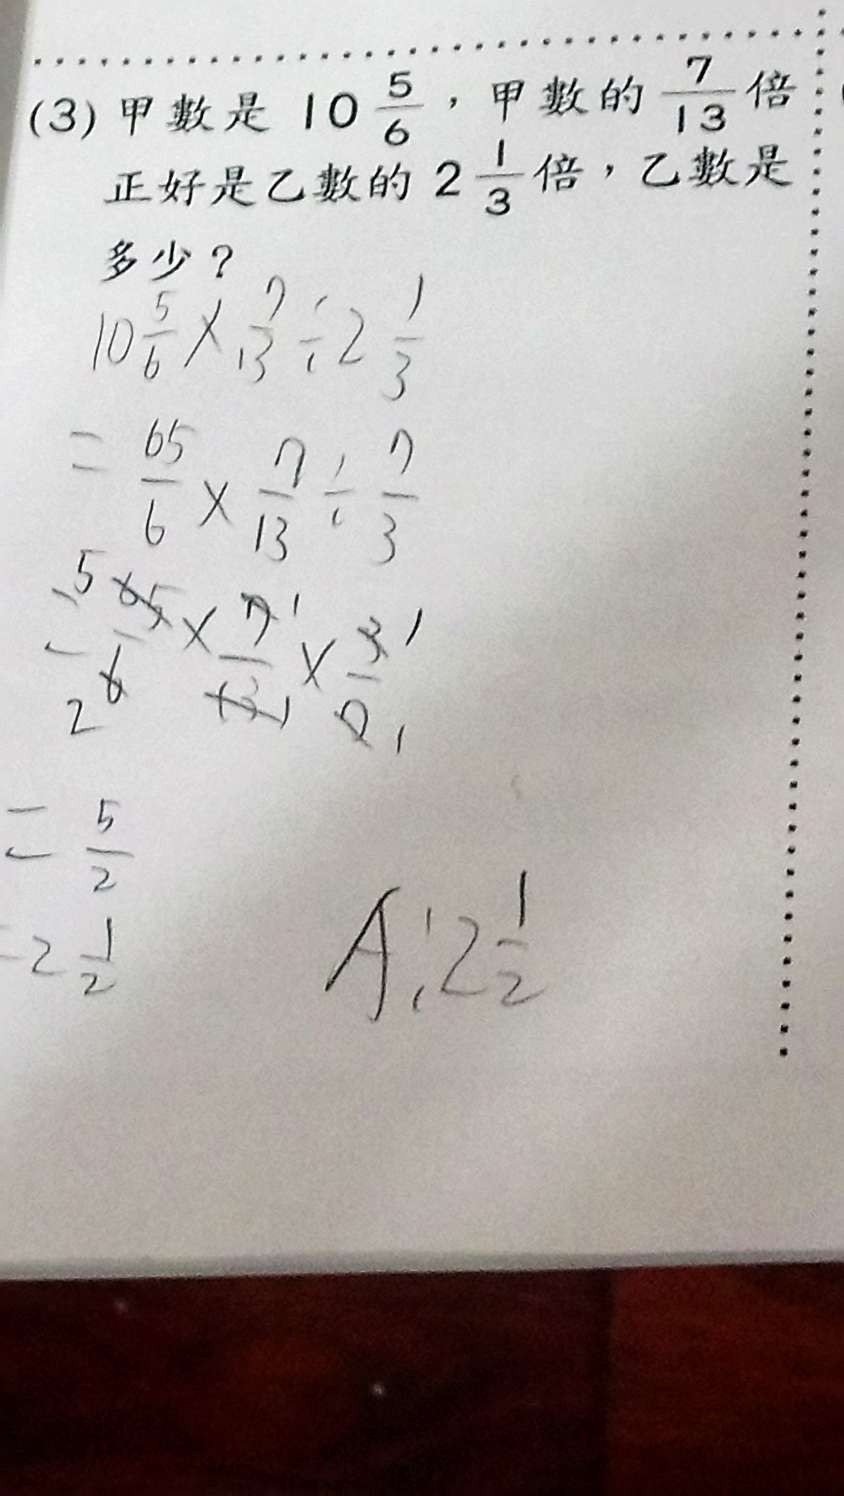 (3) 甲數是 10 5/6，甲數的 7/13 倍
正好是乙數的 2 1/3 倍，乙數是
多少？
10 5/6 × 7/13 ÷ 2 1/3
= 65/6 × 7/13 ÷ 7/3
= 5 65/6 2 × 7 1/13 1 × 3 1/7 1
= 5/2
= 2 1/2
A: 2 1/2